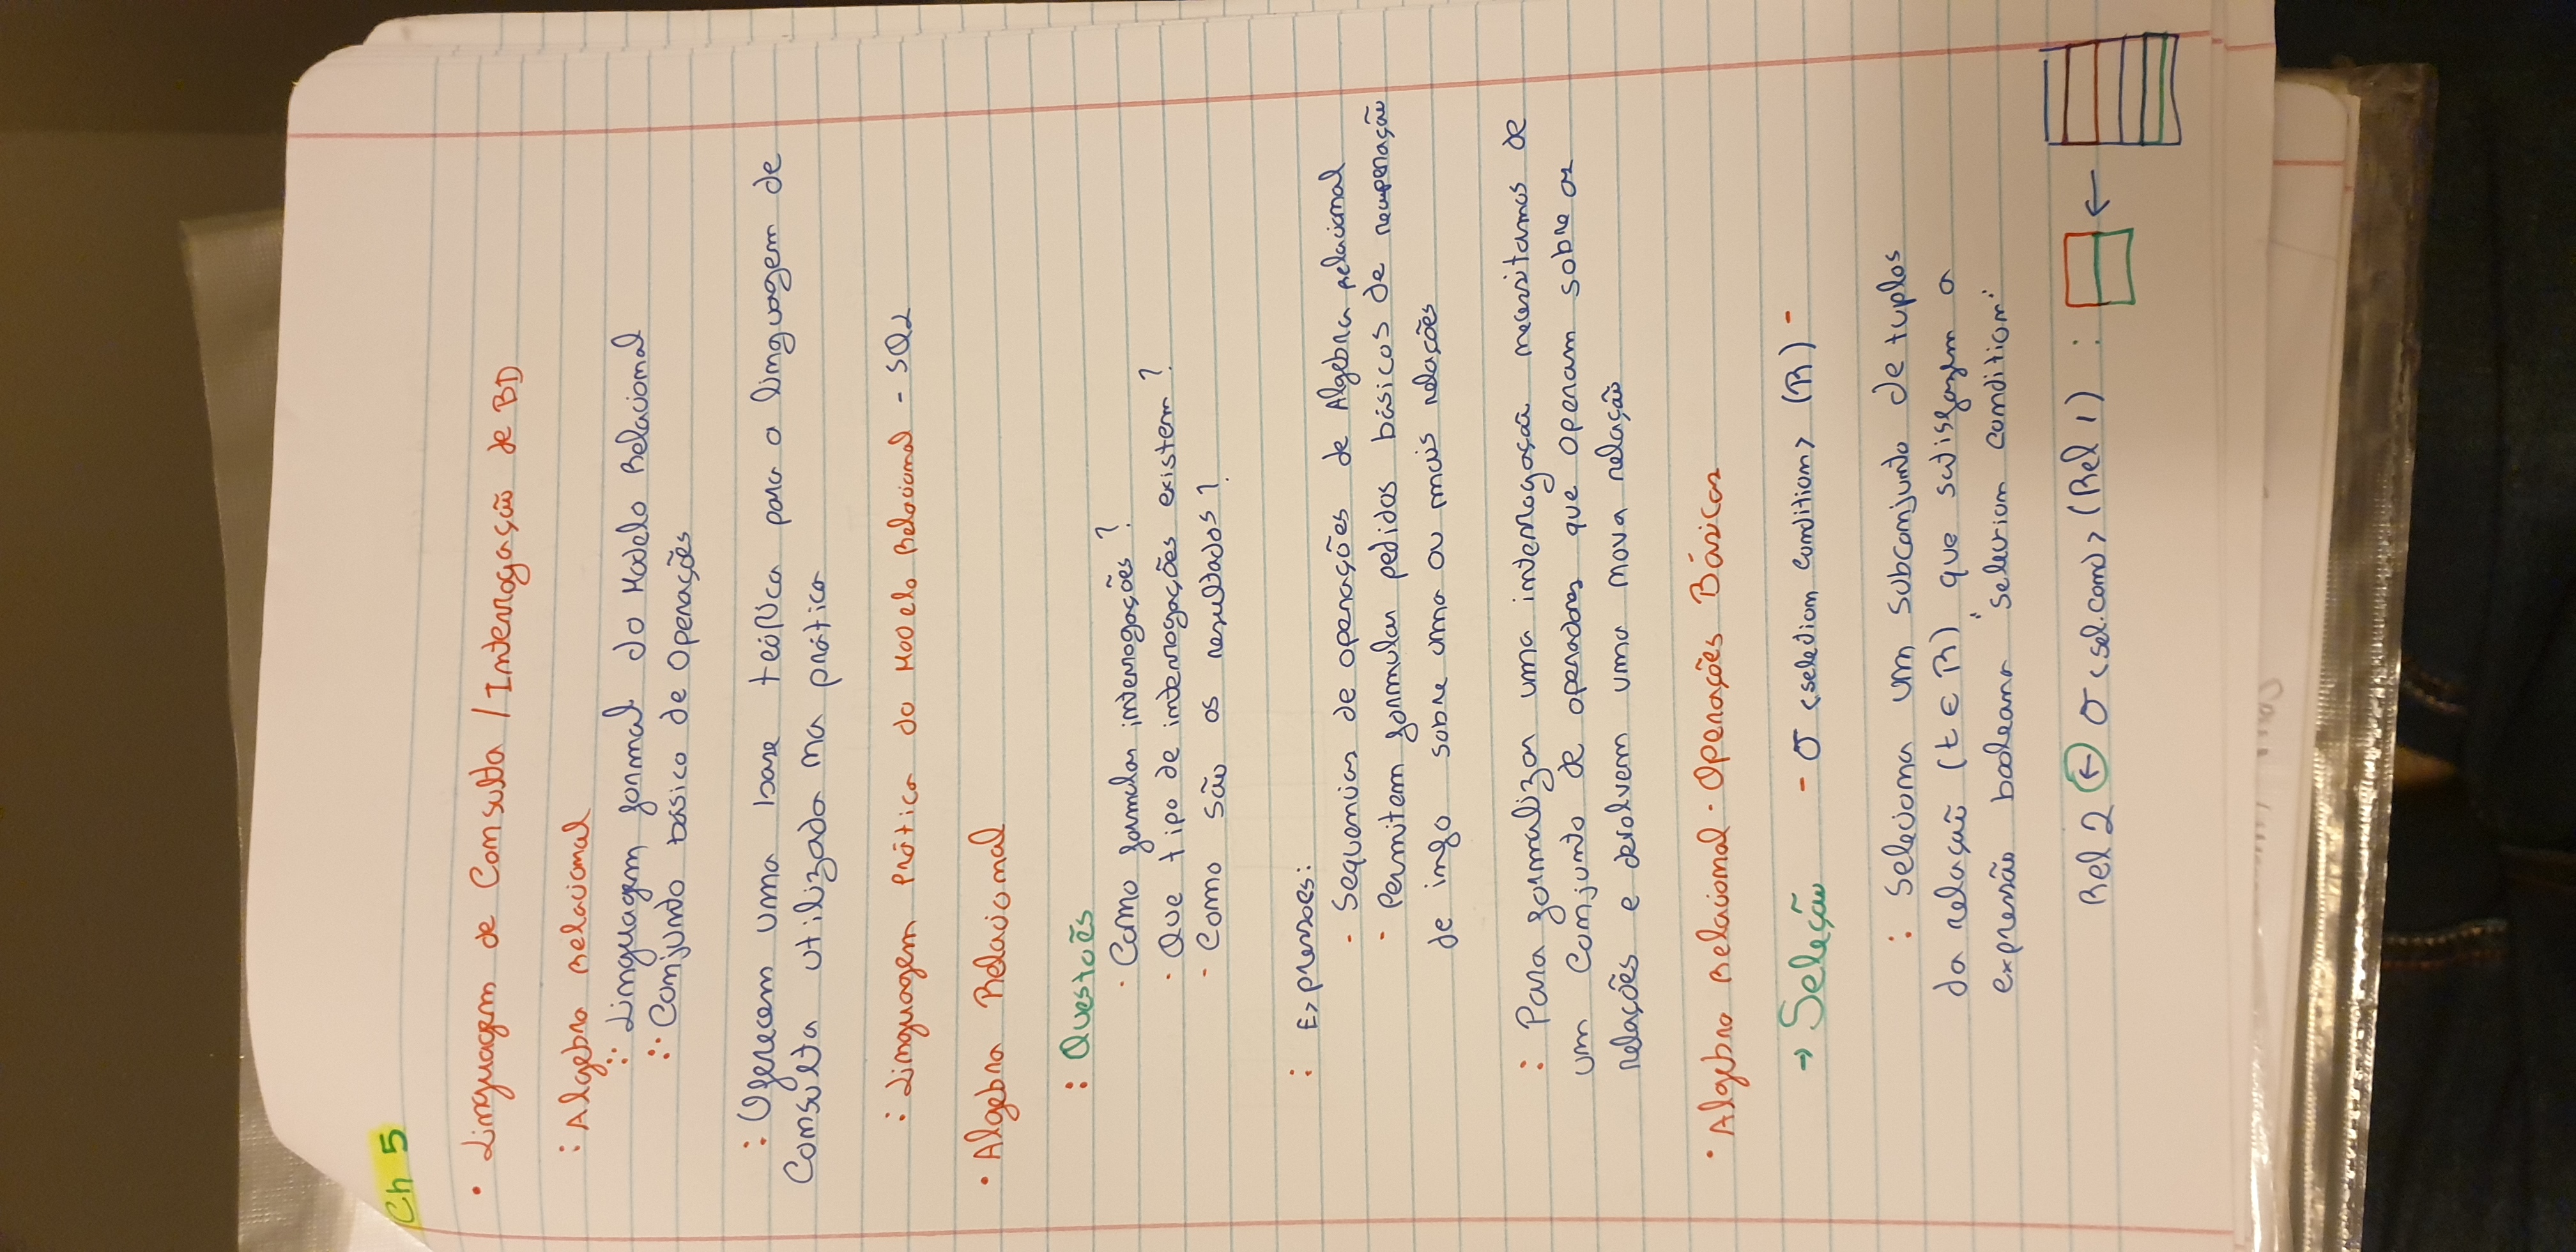 Ch 5
• Linguagem de Consulta / Interrogação de BD
: Algebra Relacional
:· Linguagem formal do Modelo Relacional
:· Conjunto básico de Operações
: Oferecem uma base teórica para a linguagem de
Consulta utilizada na prática
: Linguagem Prática do Modelo Relacional - SQL
• Algebra Relacional
: Questoẽs
· Como formular interrogações?
· Que tipo de interrogações existem?
- Como são os resultados?
: Expressoes:
- Sequencias de operações de Algebra relacional
- Permitem formular pedidos básicos de recuperação
de info sobre uma ou mais relações
: Para formalizar uma interrogação necessitamos de
um Conjunto de operadores que operam sobre as
relações e devolvem uma nova relação
• Algebra Relacional - Operações Básicas
→ Seleção - σ <selection condition> (R) -
: Seleciona um subconjunto de tuplos
da relação (t ∈ R) que satisfazem a
expressão booleana "selection condition"
Rel 2 ← σ <sel.cond> (Rel 1) : ←